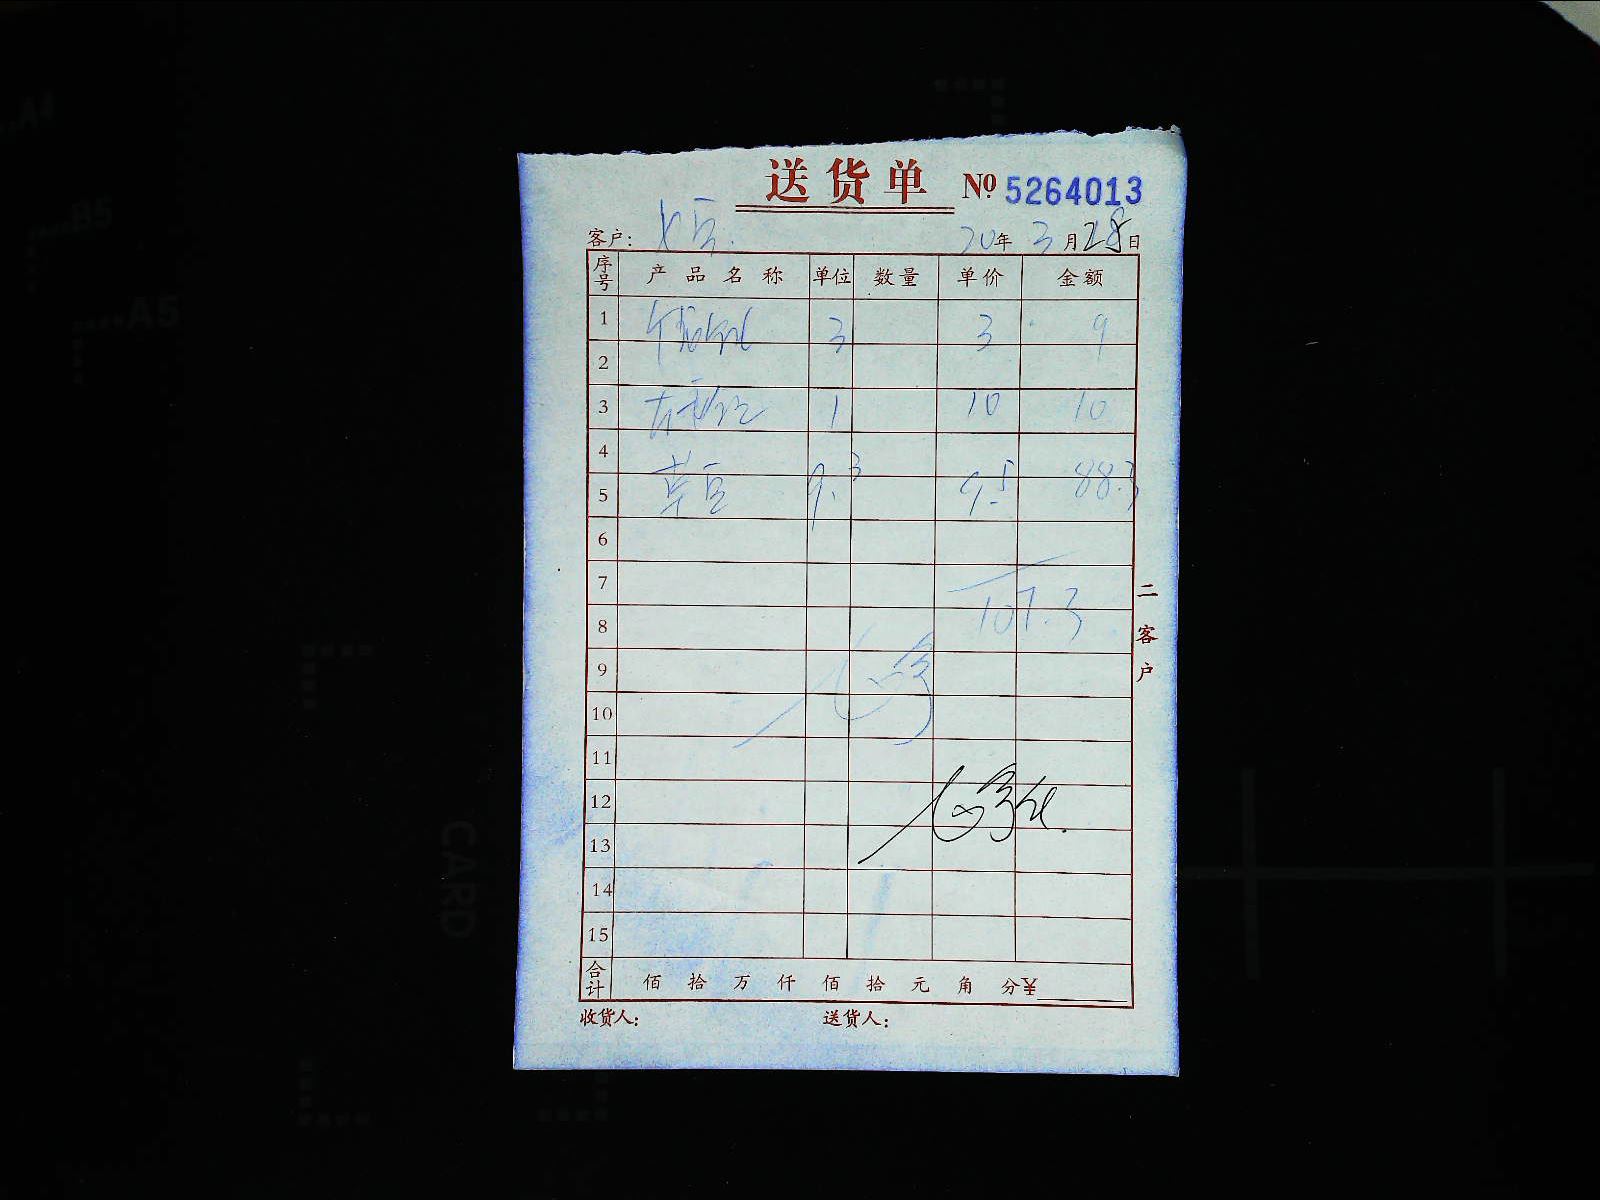 送货单 № 5264013
客户: 20年 3月 28日
序号 产品名称 单位 数量 单价 金额
1 3 3 9
2
3 1 10 10
4
5 草豆 9.3 9.5 88.3
6
7 107.3
8
9
10
11
12
13
14
15
合计 佰 拾 万 仟 佰 拾 元 角 分¥
收货人: 送货人:
二客户
A4
B5
A5
CARD